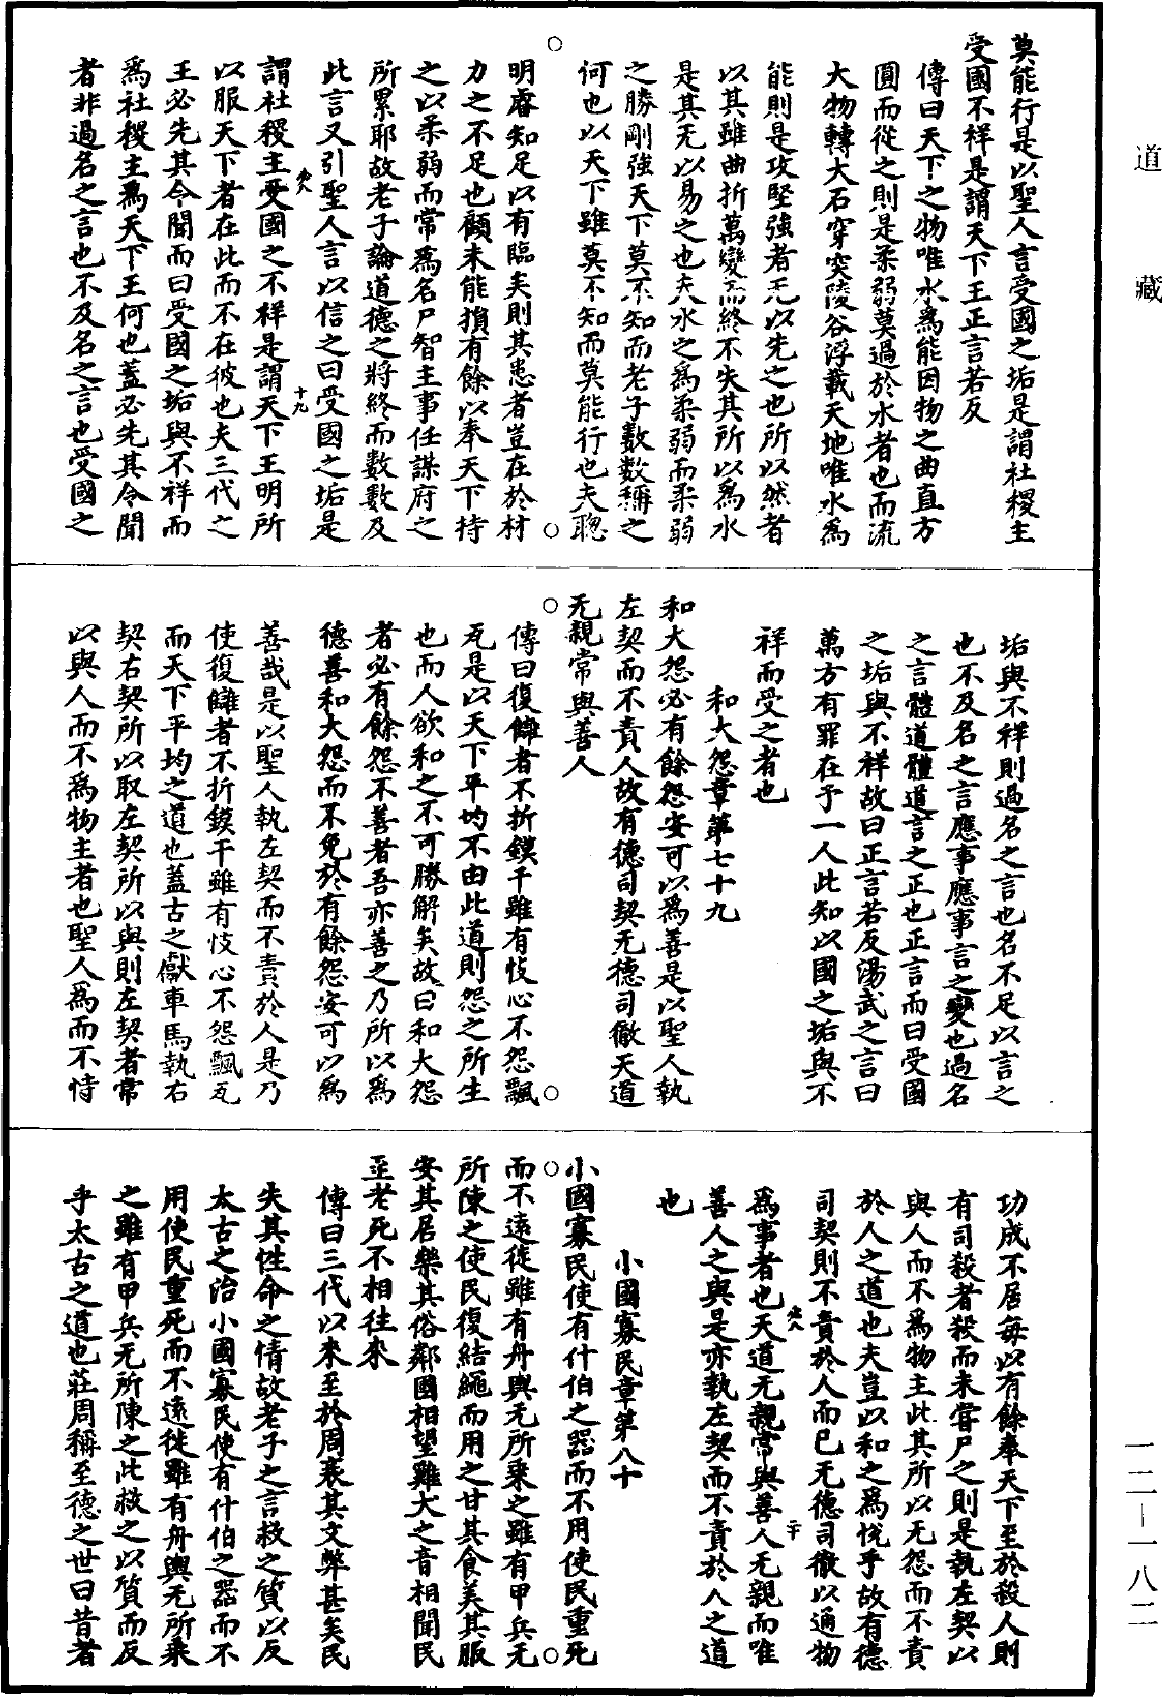 道藏
莫能行是以聖人言受國之垢是謂社稷主
受國不祥是謂天下王正言若反
傳曰天下之物唯水為能因物之曲直方
圓而從之則是柔弱莫過於水者也而流
大物轉大石穿突陵谷浮載天地唯水為
能則是攻堅強者无以先之也所以然者
以其雖曲折萬變而終不失其所以為水
是其无以易之也夫水之為柔弱而柔弱
之勝剛強天下莫不知而老子數數稱之
何也以天下雖莫不知而莫能行也夫聰
明睿知足以有臨矣則其患者豈在於材
力之不足也顧未能損有餘以奉天下持
之以柔弱而常為名尸智主事任謀府之
所累耶故老子論道德之將終而數數及
此言又引聖人言以信之曰受國之垢是
謂社稷主受國之不祥是謂天下王明所
以服天下者在此而不在彼也夫三代之
王必先其令聞而曰受國之垢與不祥而
為社稷主為天下王何也蓋必先其令聞
者非過名之言也不及名之言也受國之
垢與不祥則過名之言也名不足以言之
也不及名之言應事應事言之變也過名
之言體道體道言之正也正言而曰受國
之垢與不祥故曰正言若反湯武之言曰
萬方有罪在予一人此知以國之垢與不
祥而受之者也
和大怨章第七十九
和大怨必有餘怨安可以為善是以聖人執
左契而不責人故有德司契无德司徹天道
无親常與善人
傳曰復讎者不折鏌干雖有忮心不怨飄
瓦是以天下平均不由此道則怨之所生
也而人欲和之不可勝解矣故曰和大怨
者必有餘怨不善者吾亦善之乃所以為
德善和大怨而不免於有餘怨安可以為
善哉是以聖人執左契而不責於人是乃
使復讎者不折鏌干雖有忮心不怨飄瓦
而天下平均之道也蓋古之獻車馬執右
契右契所以取左契所以與則左契者常
以與人而不為物主者也聖人為而不恃
功成不居每以有餘奉天下至於殺人則
有司殺者殺而未嘗尸之則是執左契以
與人而不為物主此其所以无怨而不責
於人之道也夫豈以和之為悅乎故有德
司契則不責於人而已无德司徹以通物
為事者也天道无親常與善人无親而唯
善人之與是亦執左契而不責於人之道
也
小國寡民章第八十
小國寡民使有什伯之器而不用使民重死
而不遠徙雖有舟輿无所乘之雖有甲兵无
所陳之使民復結繩而用之甘其食美其服
安其居樂其俗鄰國相望雞犬之音相聞民
至老死不相往來
傳曰三代以來至於周衰其文弊甚矣民
失其性命之情故老子之言救之質以反
太古之治小國寡民使有什伯之器而不
用使民重死而不遠徙雖有舟輿无所乘
之雖有甲兵无所陳之此救之以質而反
乎太古之道也莊周稱至德之世曰昔者
一二－一八二